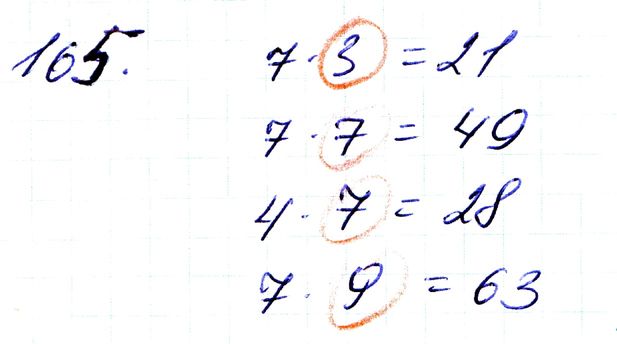 165. 7 · 3 = 21
7 · 7 = 49
4 · 7 = 28
7 · 9 = 63